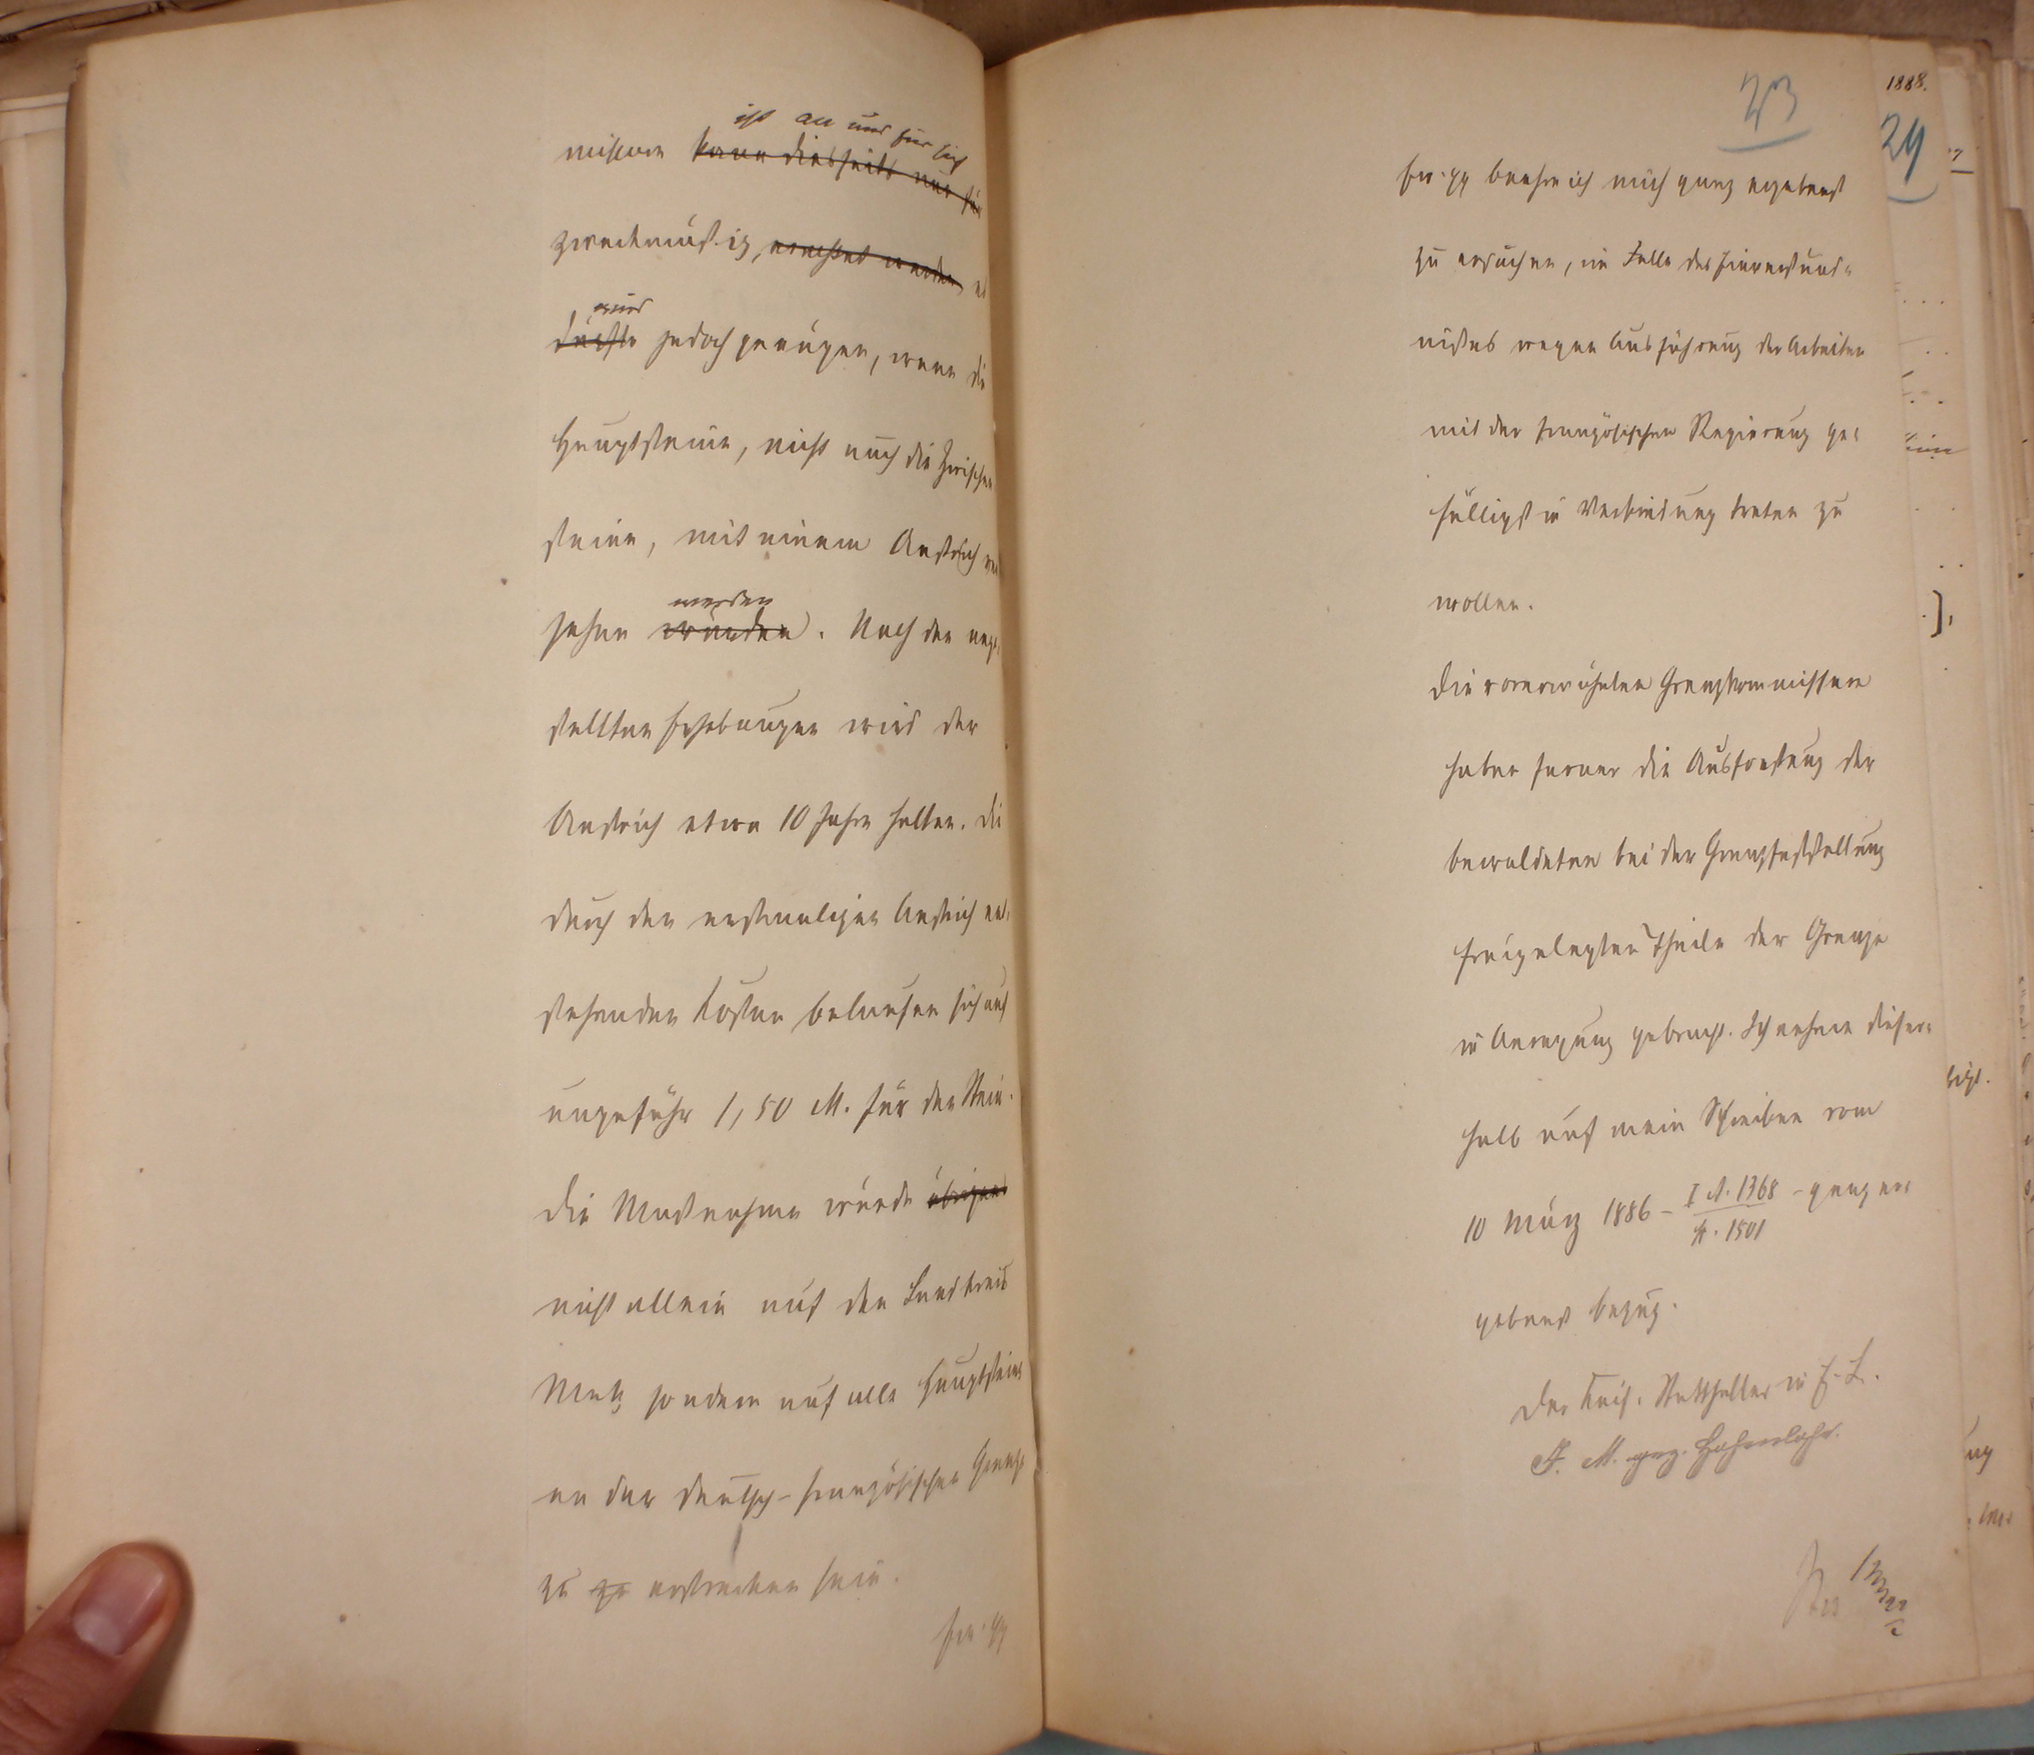 ist an und für sich
missare kann diesseits nur für
zweckmäßig, erachtet werden, es
wird
dürfte jedoch genügen, wenn die
Hauptsteine, nicht auch die Zwischen
steine, mit einem Anstrich ver
werden
sehen würden. Nach den ange
stellten Erhebungen wird der
Anstrich etwa 10 Jahre halten. Die
durch den erstmaligen Anstrich ent
stehenden Kosten belaufen sich auf
ungefähr 1,50 M. für den Stein.
Die Maßnahme würde übrigens
nicht allein auf den Landkreis
Metz sondern auf alle Hauptsteine
an der deutsch-französischen Grenze
zu zu erstrecken sein.
Ew. pp
23
Ew. pp beehre ich mich ganz ergebenst
zu ersuchen, im Falle des Einverständ-
nißes wegen Ausführung der Arbeiten
mit der französischen Regierung ge-
fälligst in Verbindung treten zu
wollen.
Die vorerwähnten Grenzkommissare
haben ferner die Ausforstung der
bewaldeten bei der Grenzfeststellung
freigelegten Theile der Grenze
in Anregung gebracht. Ich nehme dieser-
halb auf mein Schreiben vom
10 März 1886 - I A. 1368 - ganz er-
1501
gebenst bezug.
Der Kais. Statthalter in E.-L.
F. M. gez. Hohenlohe.
1888.
24